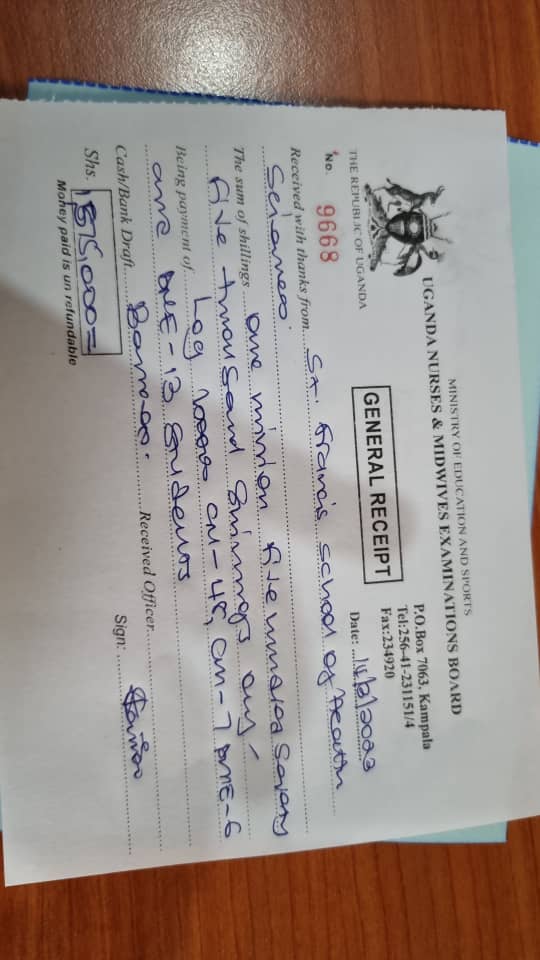 MINISTRY OF EDUCATION AND SPORTS
UGANDA NURSES & MIDWIVES EXAMINATIONS BOARD
P.O.Box 7063, Kampala
Tel:256-41-231151/4
Fax:234920
THE REPUBLIC OF UGANDA
GENERAL RECEIPT
No. 9668
Date: 14/8/2023
Received with thanks from St. Francis School of Health
Sciences.
The sum of shillings one million five hundred seventy
five thousand shillings only
Being payment of Log books CN-48, CM-7 DME-6
and DNE-13 Students
Cash/Bank Draft Received Officer
Shs. 1575000=
Sign:
Money paid is un refundable